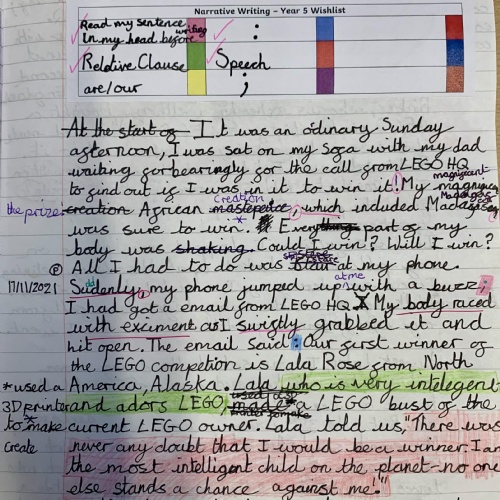 Narrative Writing – Year 5 Wishlist
Read my sentence
in my head before writing
:
Relative Clause
Speech
are/our
;
At the start of It was an odinary Sunday
afternoon, I was sat on my sofa with my dad
waiting forbearingly for the call from LEGO HQ
magnificant
to find out if I was in it to win it! My
creation
the prize creation African masterpeice, which included Madagascar
was sure to win. Every thing part of my
body was shaking. Could I win? Will I win?
All I had to do was stair at my phone.
at me
17/11/2021 Suddenly, my phone jumped up with a buzz;
I had got a email from LEGO HQ. My body raced
with exciment as I swiftly grabbed it and
hit open. The email said: Our first winner of
the LEGO competion is Lala Rose from North
*used a America, Alaska. Lala who is very intelegent
3D printer and adors LEGO, made a LEGO bust of the
to make current LEGO owner. Lala told us, "There was
Create never any doubt that I would be a winner. I am
the most intelligent child on the planet-no one
else stands a chance against me!"